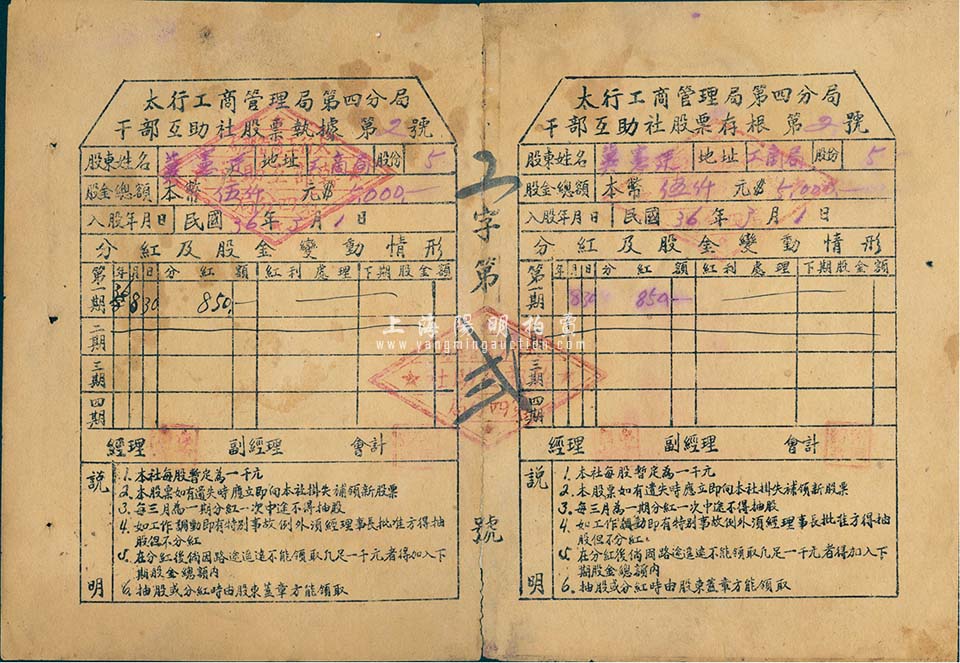 太行工商管理局第四分局
干部互助社股票執據 第2號
股東姓名 地址 工商局 股份 5
股金總額 本幣 伍仟 元 $5,000.—
入股年月日 民國36年5月1日
分紅及股金變動情形
年 月 日 分紅額 紅利處理 下期股金額
第一期 8 30 850.—
二期
三期
四期
經理 副經理 會計
說明
1. 本社每股暫定為一千元
2. 本股票如有遺失時應立即向本社掛失補領新股票
3. 每三月為一期分紅一次中途不得抽股
4. 如工作調動即有特別事故例外須經理事長批准方得抽
股但不分紅
5. 在分紅後倘因路途遥遠不能領取凡足一千元者得加入下
期股金總額內
6. 抽股或分紅時由股東蓋章方能領取
工字第 弍 號
太行工商管理局第四分局
干部互助社股票存根 第2號
股東姓名 地址 工商局 股份 5
股金總額 本幣 伍仟 元 $5,000.—
入股年月日 民國36年5月1日
分紅及股金變動情形
年 月 日 分紅額 紅利處理 下期股金額
第一期 8 30 850.—
二期
三期
四期
經理 副經理 會計
說明
1. 本社每股暫定為一千元
2. 本股票如有遺失時應立即向本社掛失補領新股票
3. 每三月為一期分紅一次中途不得抽股
4. 如工作調動即有特別事故例外須經理事長批准方得抽
股但不分紅
5. 在分紅後倘因路途遥遠不能領取凡足一千元者得加入下
期股金總額內
6. 抽股或分紅時由股東蓋章方能領取
上海陽明拍賣
www.yangmingauction.com